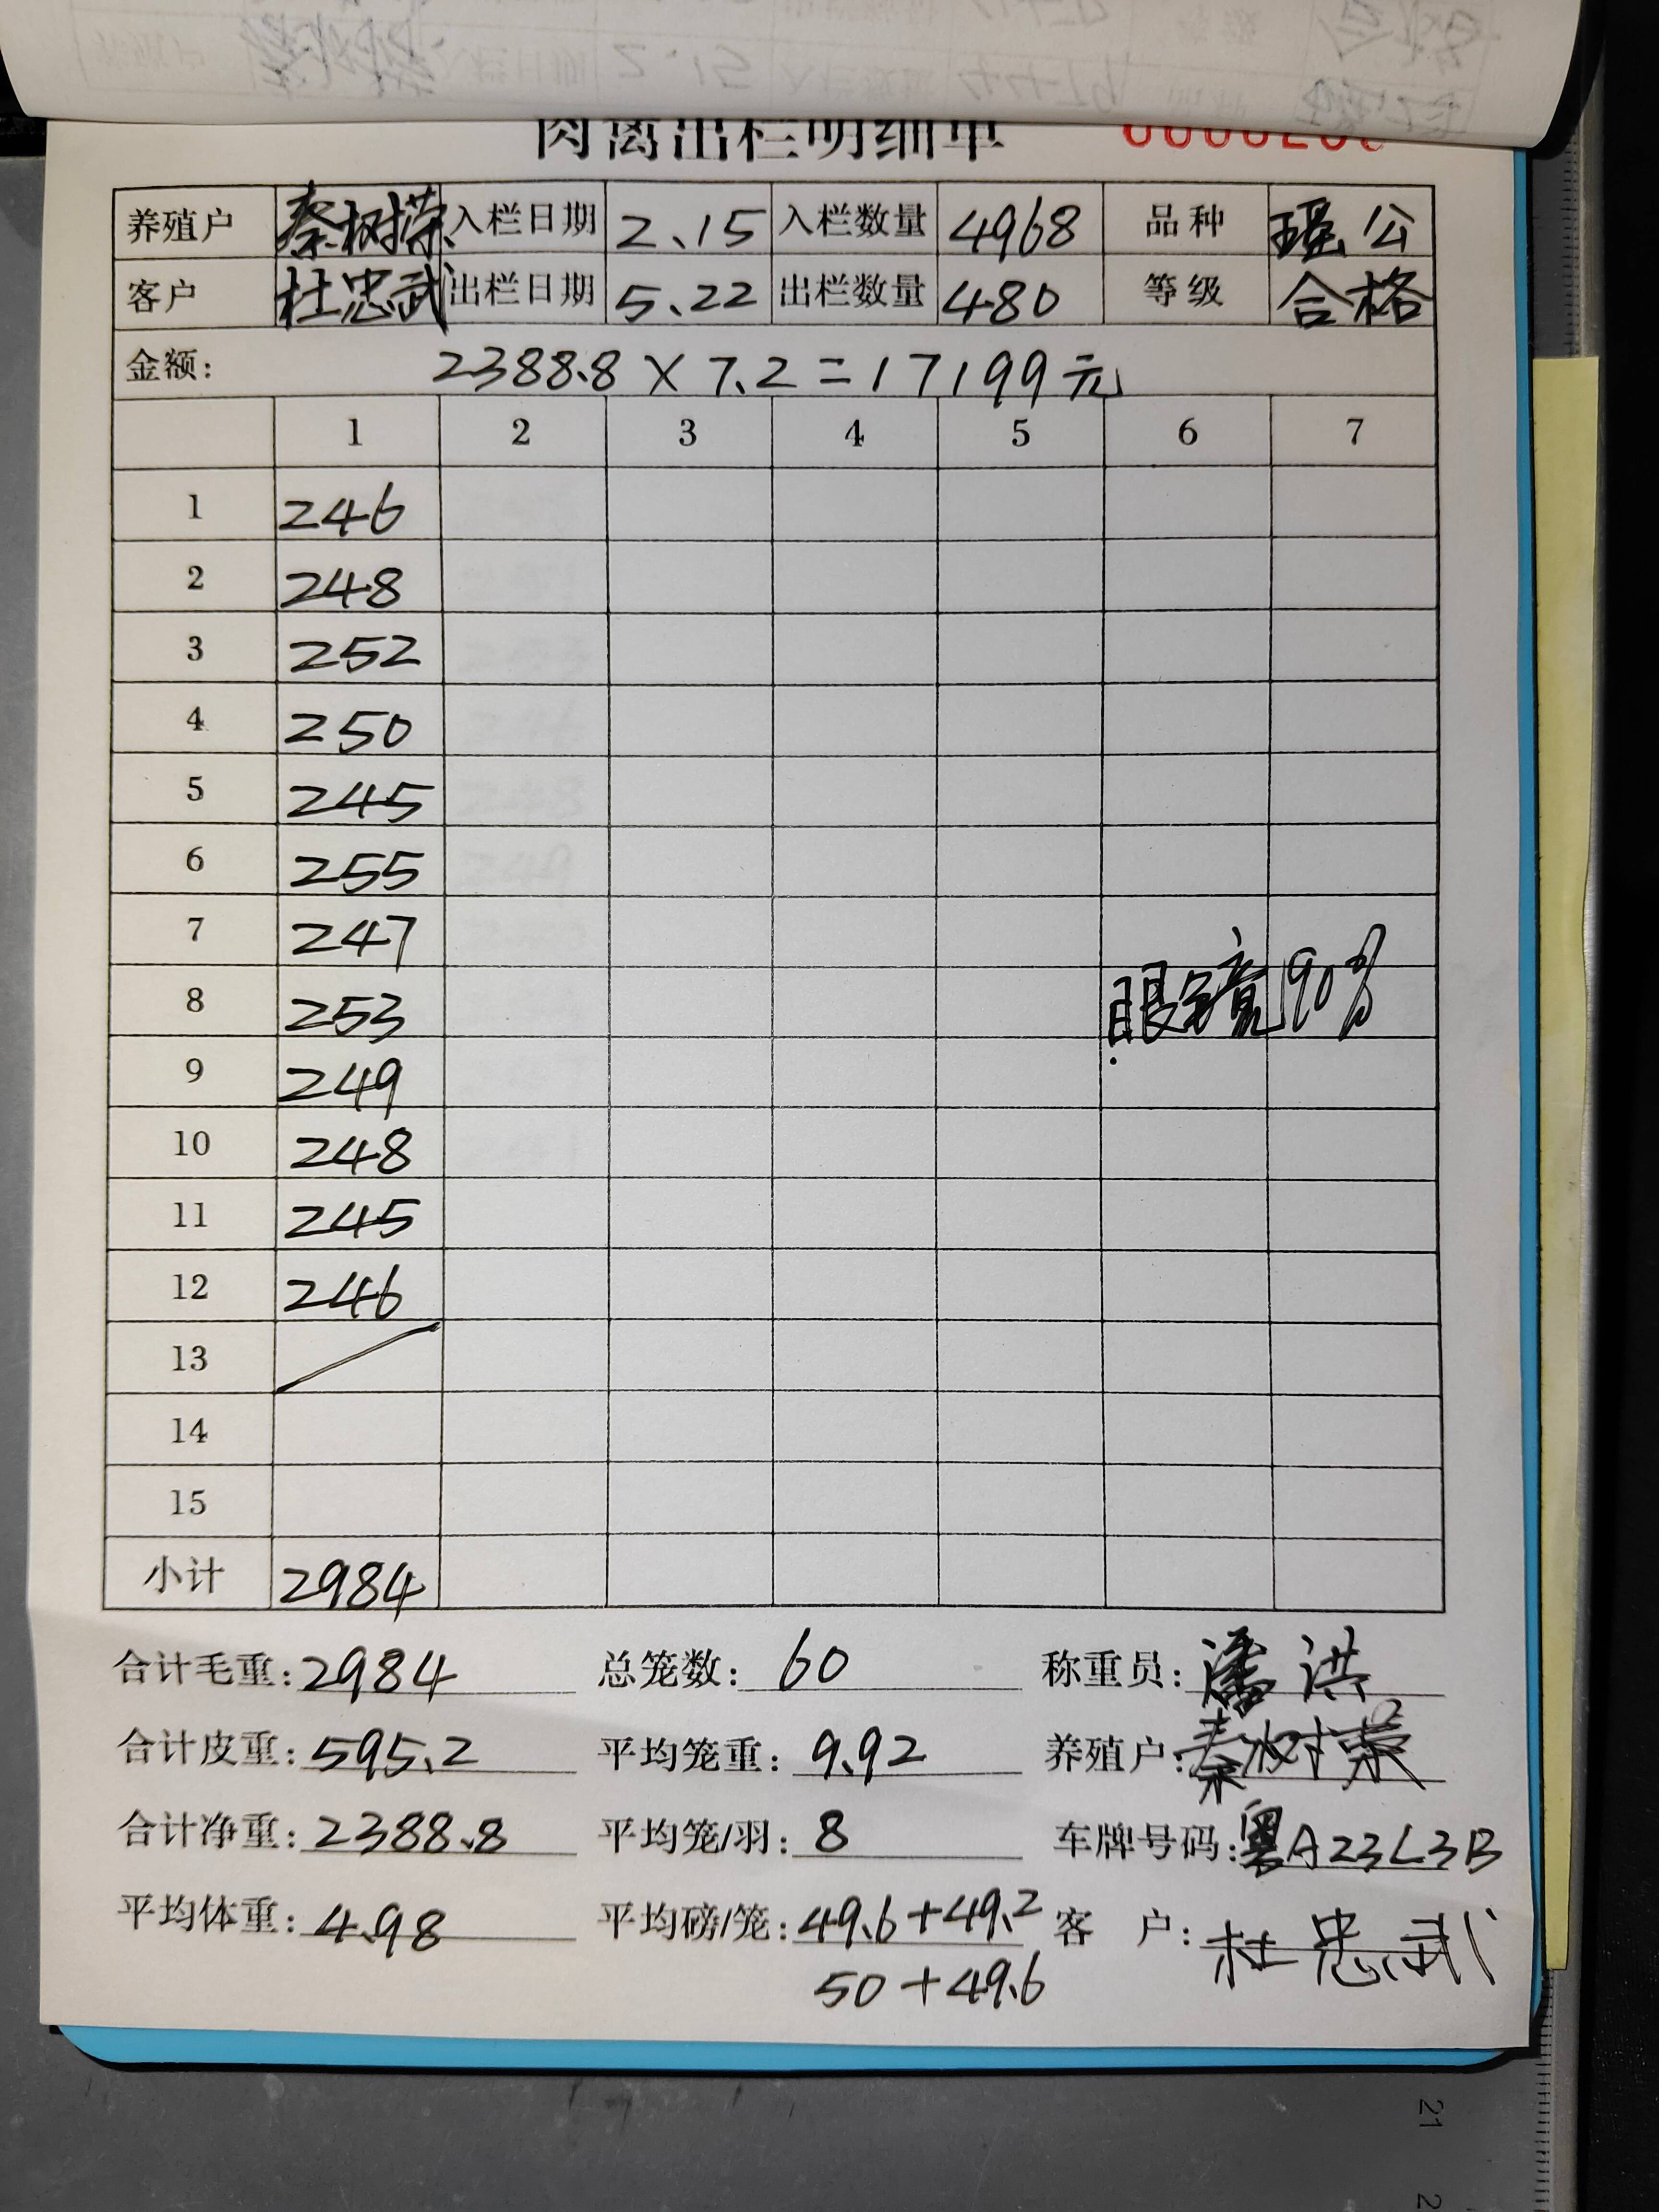 肉禽出栏明细单
养殖户 秦树荣 入栏日期 2.15 入栏数量 4968 品种 瑶公
客户 杜忠武 出栏日期 5.22 出栏数量 480 等级 合格
金额: 2388.8 × 7.2 = 17199元
1 2 3 4 5 6 7
1 246
2 248
3 252
4 250
5 245
6 255
7 247
8 253 眼镜90%
9 249
10 248
11 245
12 246
13
14
15
小计 2984
合计毛重: 2984 总笼数: 60 称重员: 潘洪
合计皮重: 595.2 平均笼重: 9.92 养殖户: 秦树荣
合计净重: 2388.8 平均笼/羽: 8 车牌号码: 粤A23L3B
平均体重: 4.98 平均磅/笼: 49.6+49.2 客 户: 杜忠武
50+49.6
21